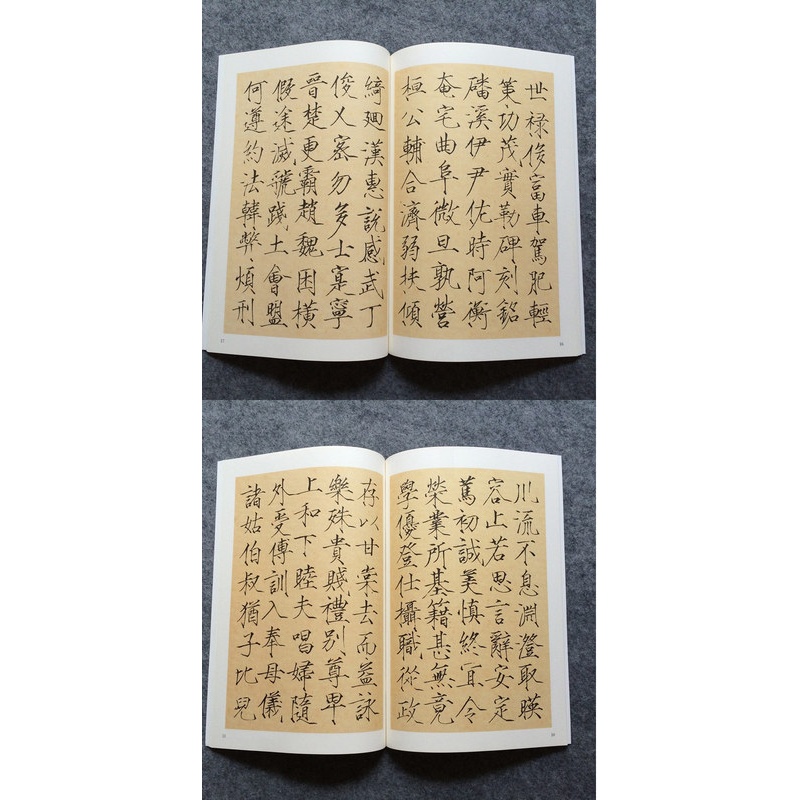 世禄侈富車駕肥輕
策功茂實勒碑刻銘
磻溪伊尹佐時阿衡
奄宅曲阜微旦孰營
桓公輔合濟弱扶傾
綺廻漢惠説感武丁
俊乂密勿多士寔寧
晉楚更霸趙魏困橫
假途滅虢踐土會盟
何遵約法韓弊煩刑
川流不息淵澄取暎
容止若思言辭安定
篤初誠美慎終宜令
榮業所基籍甚無竟
學優登仕攝職從政
存以甘棠去而益詠
樂殊貴賤禮別尊卑
上和下睦夫唱婦隨
外受傅訓入奉母儀
諸姑伯叔猶子比兒